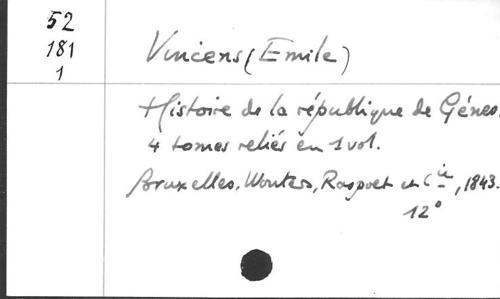 52
181
1
Vincens (Emile)
Histoire de la république de Gênes.
4 tomes reliés en 1 vol.
Bruxelles, Wouters, Raspoet et Cie, 1843.
12°